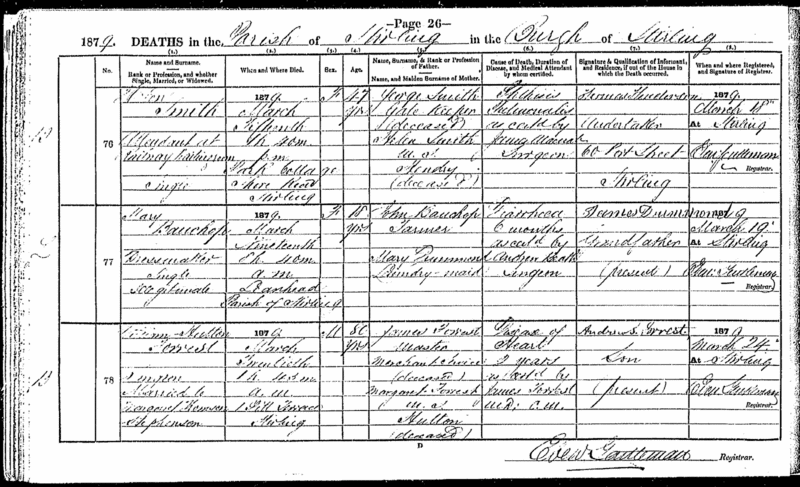 —Page 26—
1879. DEATHS in the Parish of Stirling in the Burgh of Stirling
(1.) (2.) (3.) (4.) (5.) (6.) (7.) (8.)
No.
Name and Surname.
Rank or Profession, and whether Single, Married, or Widowed.
When and Where Died.
Sex.
Age.
Name, Surname, & Rank or Profession of Father.
Name, and Maiden Surname of Mother.
Cause of Death, Duration of Disease, and Medical Attendant by whom certified.
Signature & Qualification of Informant, and Residence, if out of the House in which the Death occurred.
When and where Registered, and Signature of Registrar.
76
Smith
Attendant at
Railway
Single
1879
March
Fifteenth
1h. 40m.
p.m.
Park Cottage
Shore Road
Stirling
F
47
yrs
George Smith
(deceased)
Helen Smith
m.s.
Hendry
(deceased)
Phthisis
Pulmonalis
as certd by
Surgeon
Thomas Henderson
Undertaker
60 Port Street
Stirling
1879
March 18th
At Stirling
Registrar.
77
Mary
Bauchop
Dressmaker
Single
Illegitimate
1879
March
Nineteenth
8h. 40m.
a.m.
Parish of Stirling
F
18
yrs
John Bauchop
Farmer
Mary Drummond
Laundry-maid
6 months
as certd by
Andrew Beath
Surgeon
James Drummond
Grandfather
(present)
1879
March 19th
At Stirling
Registrar.
78
Forrest
Surgeon
Married to
Margaret
Stephenson
1879
March
Twentieth
1h. 45m.
a.m.
1 Pitt Terrace
Stirling
M
80
yrs
James Forrest
Master
Merchant Service
(deceased)
Margaret Forrest
m.s.
Hutton
(deceased)
Disease of
Heart
2 years
as certd by
James Forrest
M.D. C.M.
Andrew S. Forrest
Son
(present)
1879
March 24th
At Stirling
Registrar.
D
Registrar.